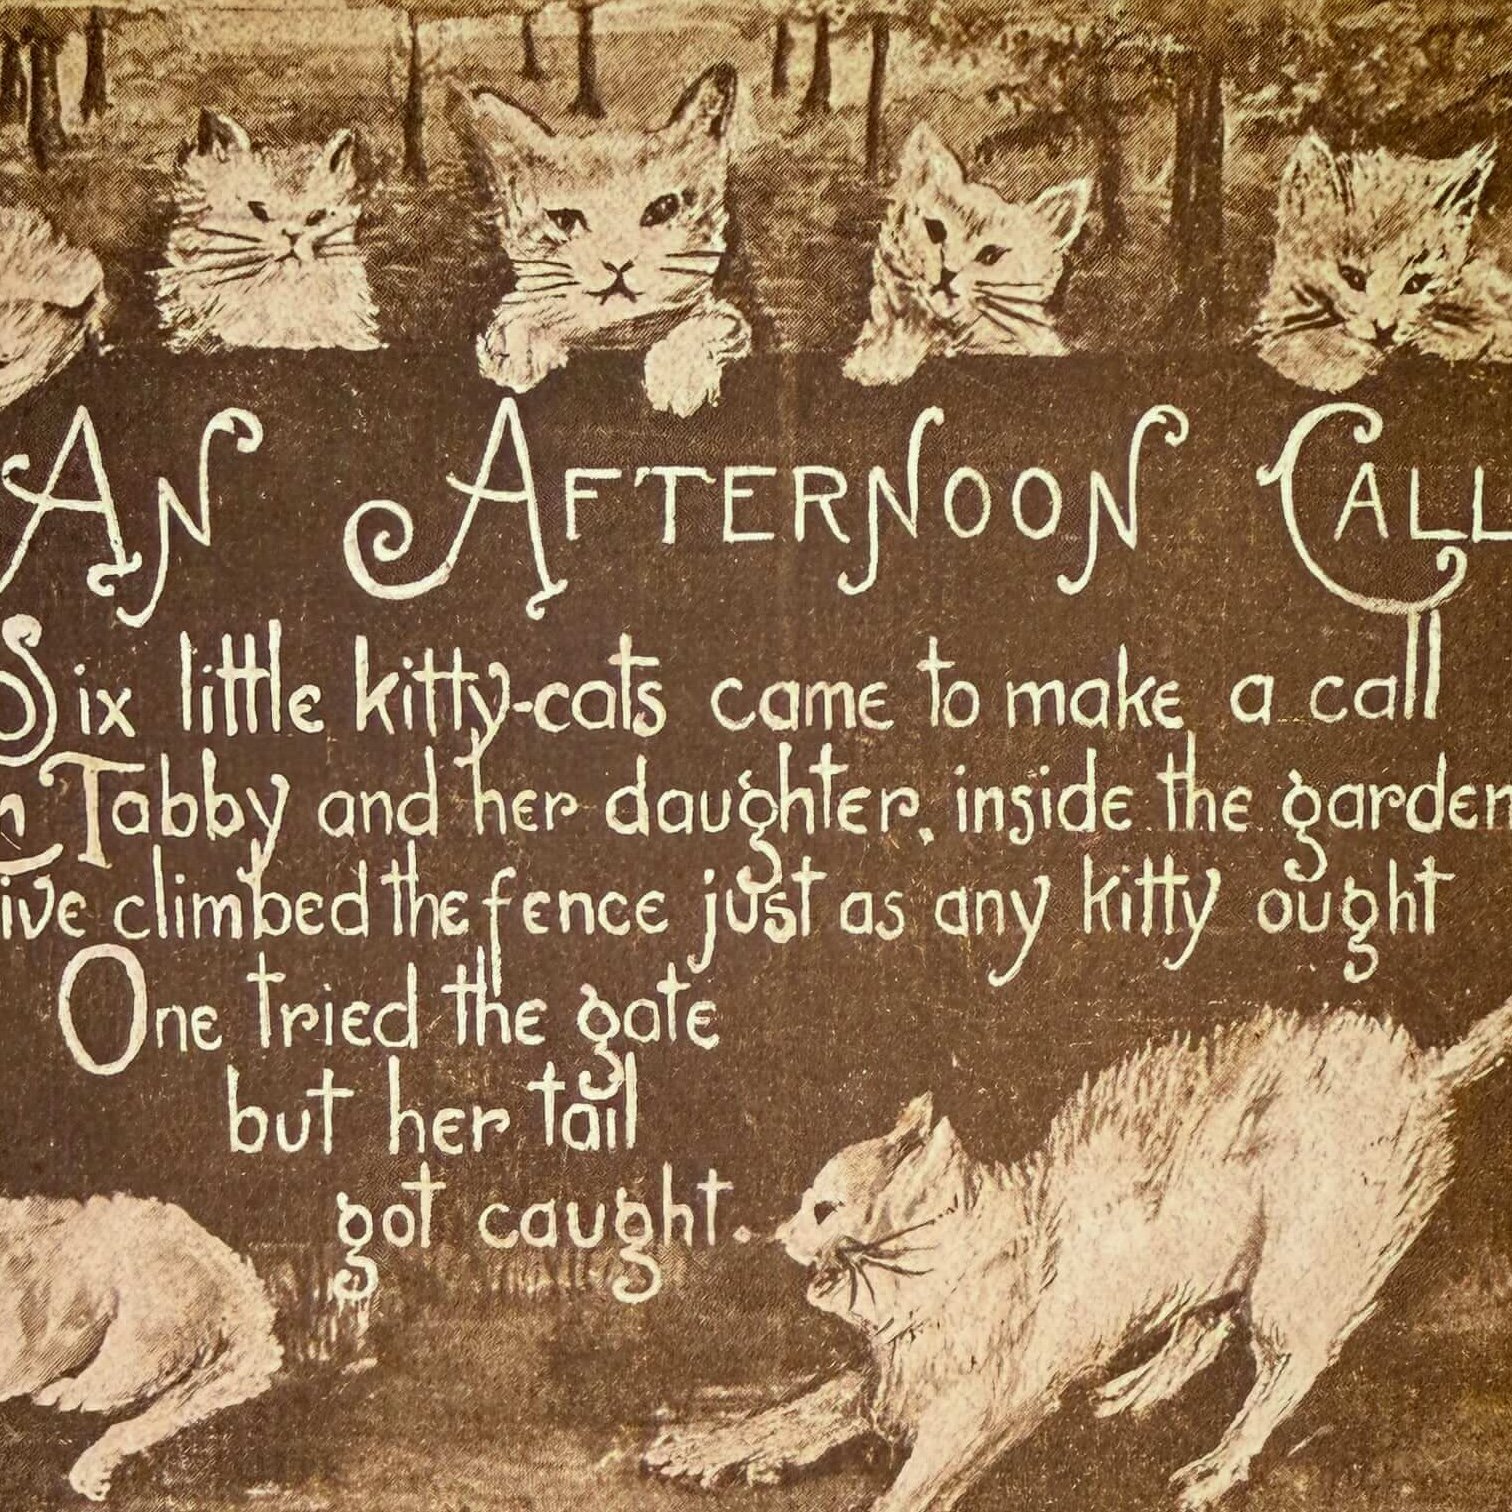 AN AFTERNOON CALL
Six little kitty-cats came to make a call
Tabby and her daughter, inside the garden
ive climbed the fence just as any kitty ought
One tried the gate
but her tail
got caught.